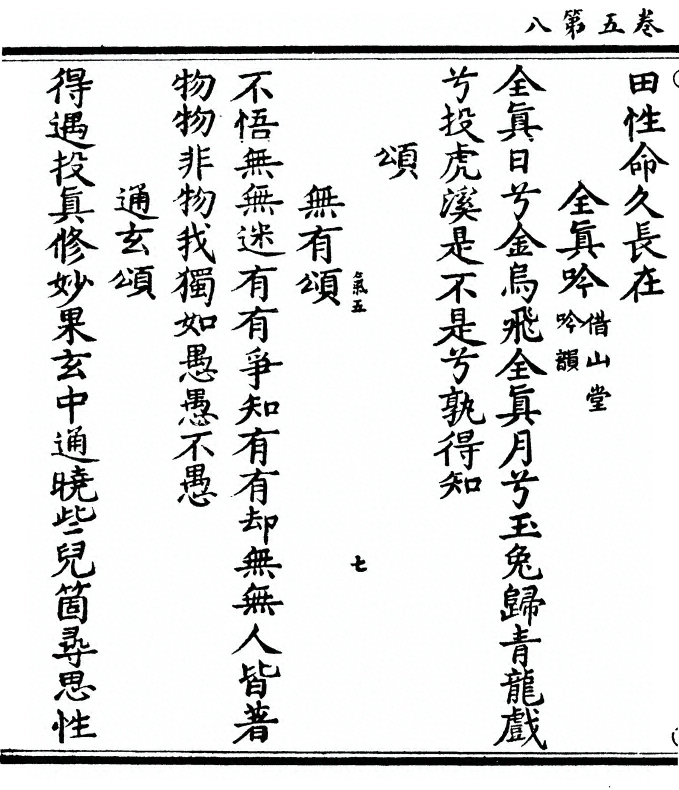 八第五卷
田性命久長在
全眞吟借山堂吟韻
全眞日兮金烏飛全眞月兮玉兔歸青龍戲
兮投虎溪是不是兮孰得知
頌
無有頌
氣五
七
不悟無無迷有有爭知有有却無無人皆著
物物非物我獨如愚愚不愚
通玄頌
得遇投眞修妙果玄中通曉些兒箇尋思性